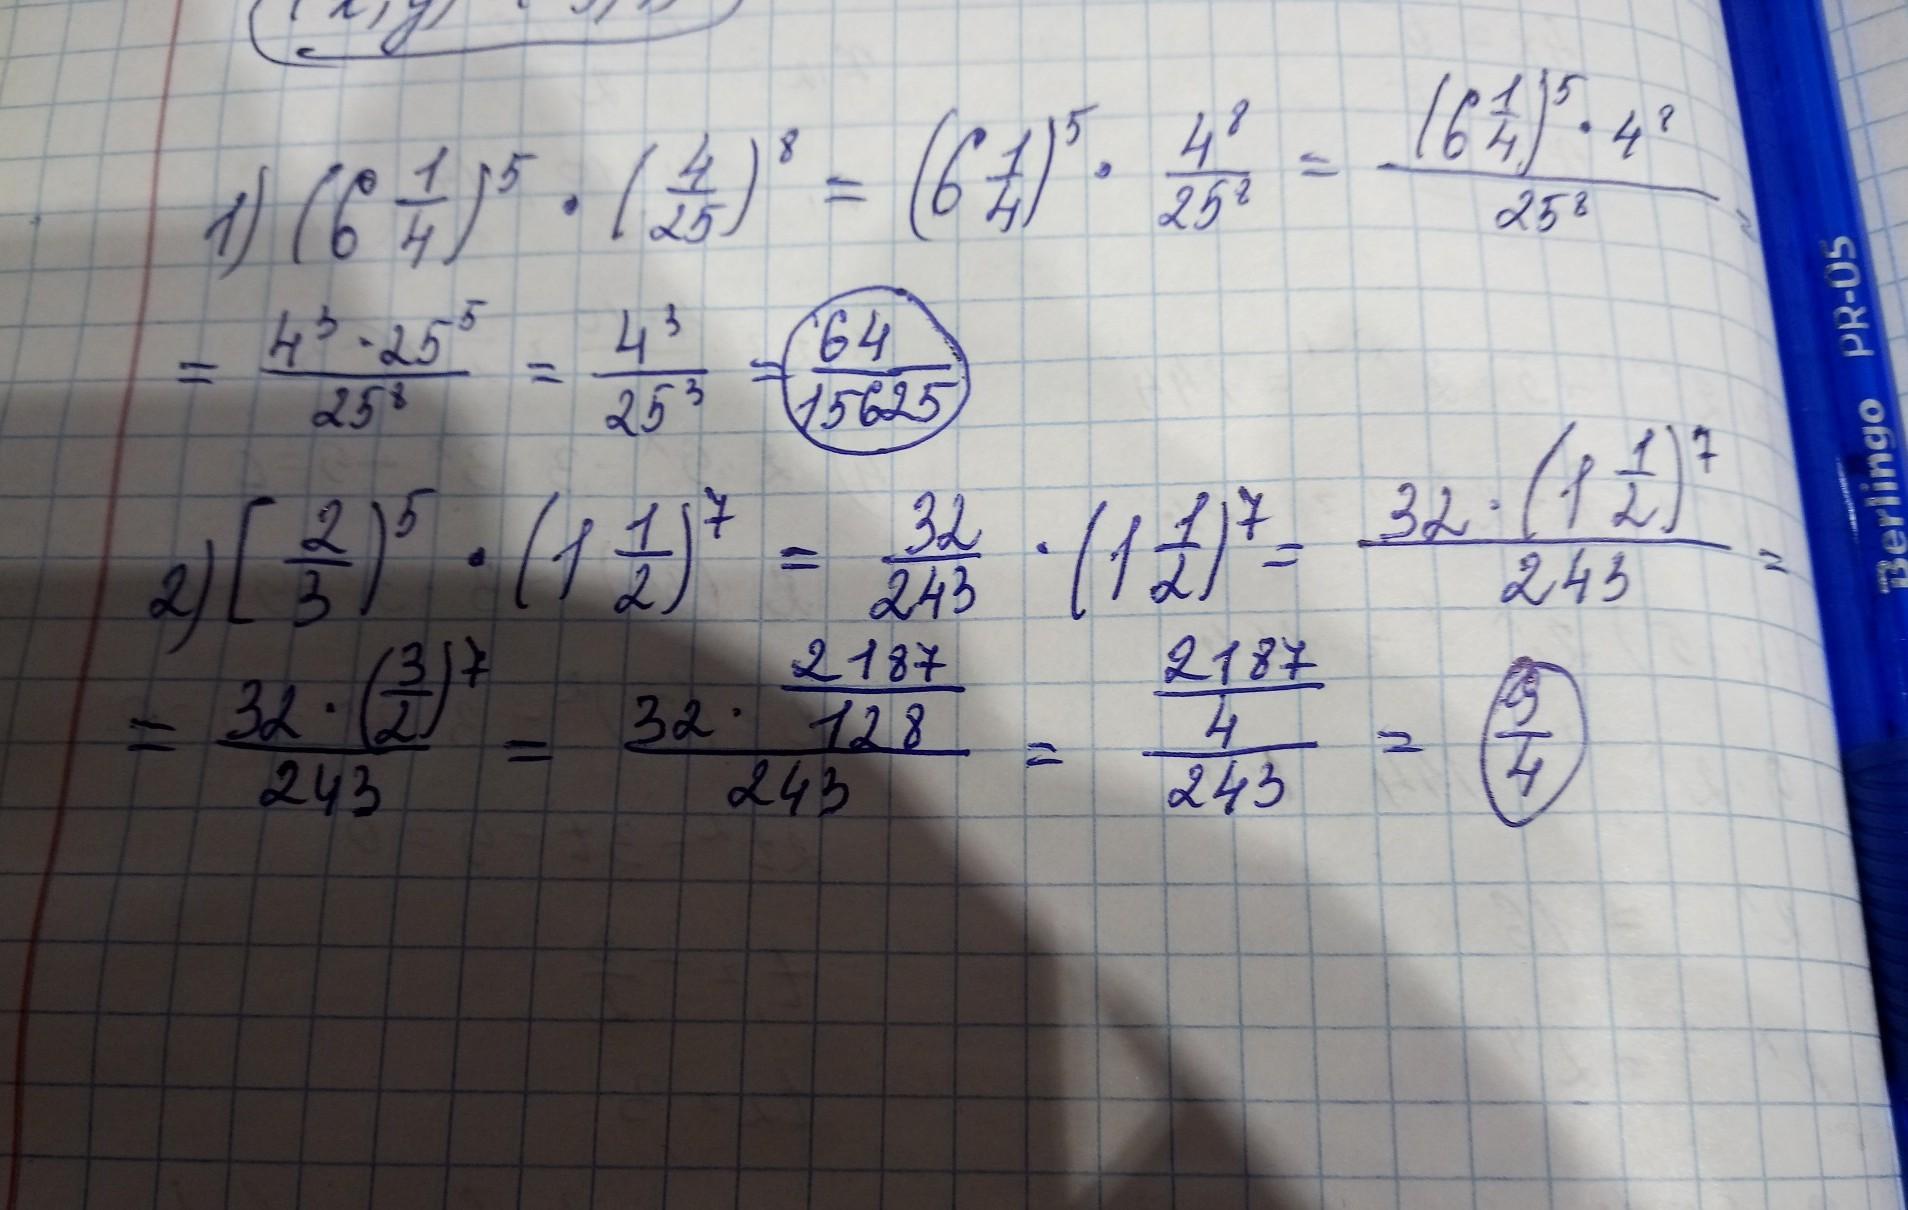 1) (6 1/4)^5 · (4/25)^8 = (6 1/4)^5 · 4^8/25^8 = ((6 1/4)^5 · 4^8)/25^8 =
= (4^3 · 25^5)/25^8 = 4^3/25^3 = 64/15625
2) [2/3)^5 · (1 1/2)^7 = 32/243 · (1 1/2)^7 = (32 · (1 1/2)^7)/243 =
= (32 · (3/2)^7)/243 = (32 · 2187/128)/243 = (2187/4)/243 = 9/4
Berlingo PR-05